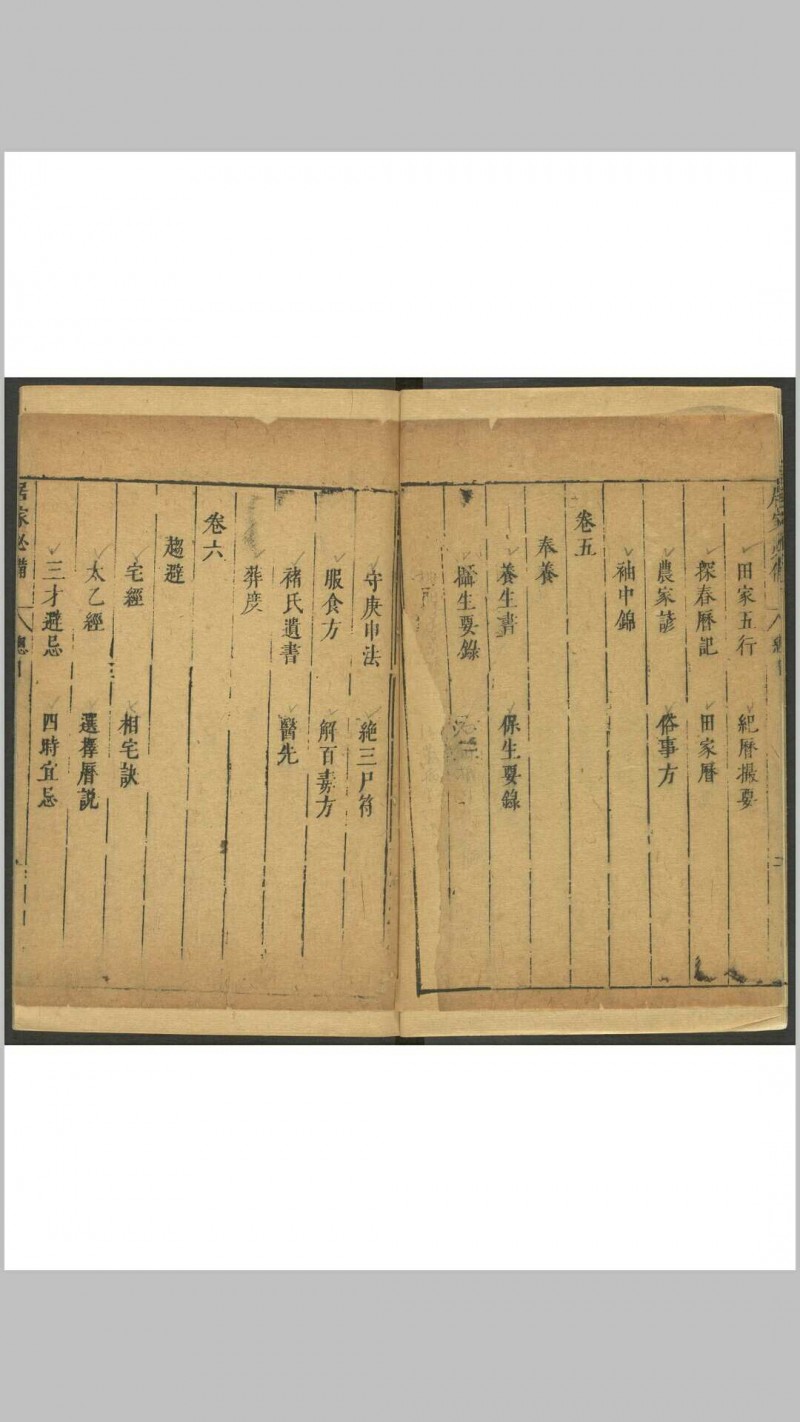 田家五行 紀曆撮要
探春曆記 田家曆
農家諺 俗事方
袖中錦
卷五
奉養
養生書 保生要錄
攝生要錄
守庚申法 絶三尸符
服食方 解百毒方
褚氏遺書 醫先
葬度
卷六
趨避
宅經 相宅訣
太乙經 選擇曆説
三才避忌 四時宜忌
居家必備 總目